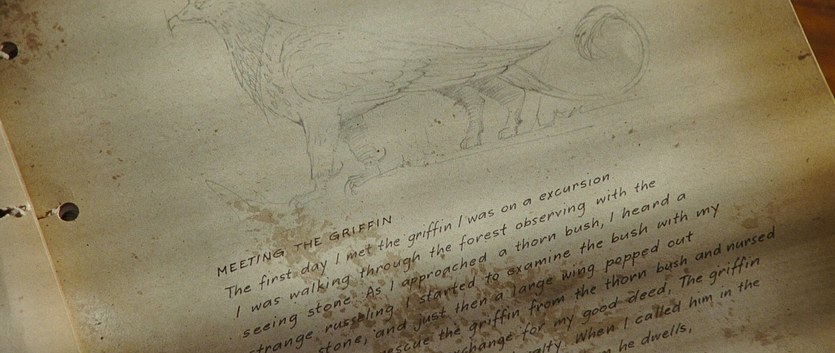 MEETING THE GRIFFIN
The first day I met the griffin I was on a excursion
I was walking through the forest observing with the
seeing stone. As I approached a thorn bush, I heard a
strange russling I started to examine the bush with my
stone, and just then a large wing popped out
rescue the griffin from the thorn bush and nursed
exchange for my good deed, The griffin
When I called him in the
he dwells,